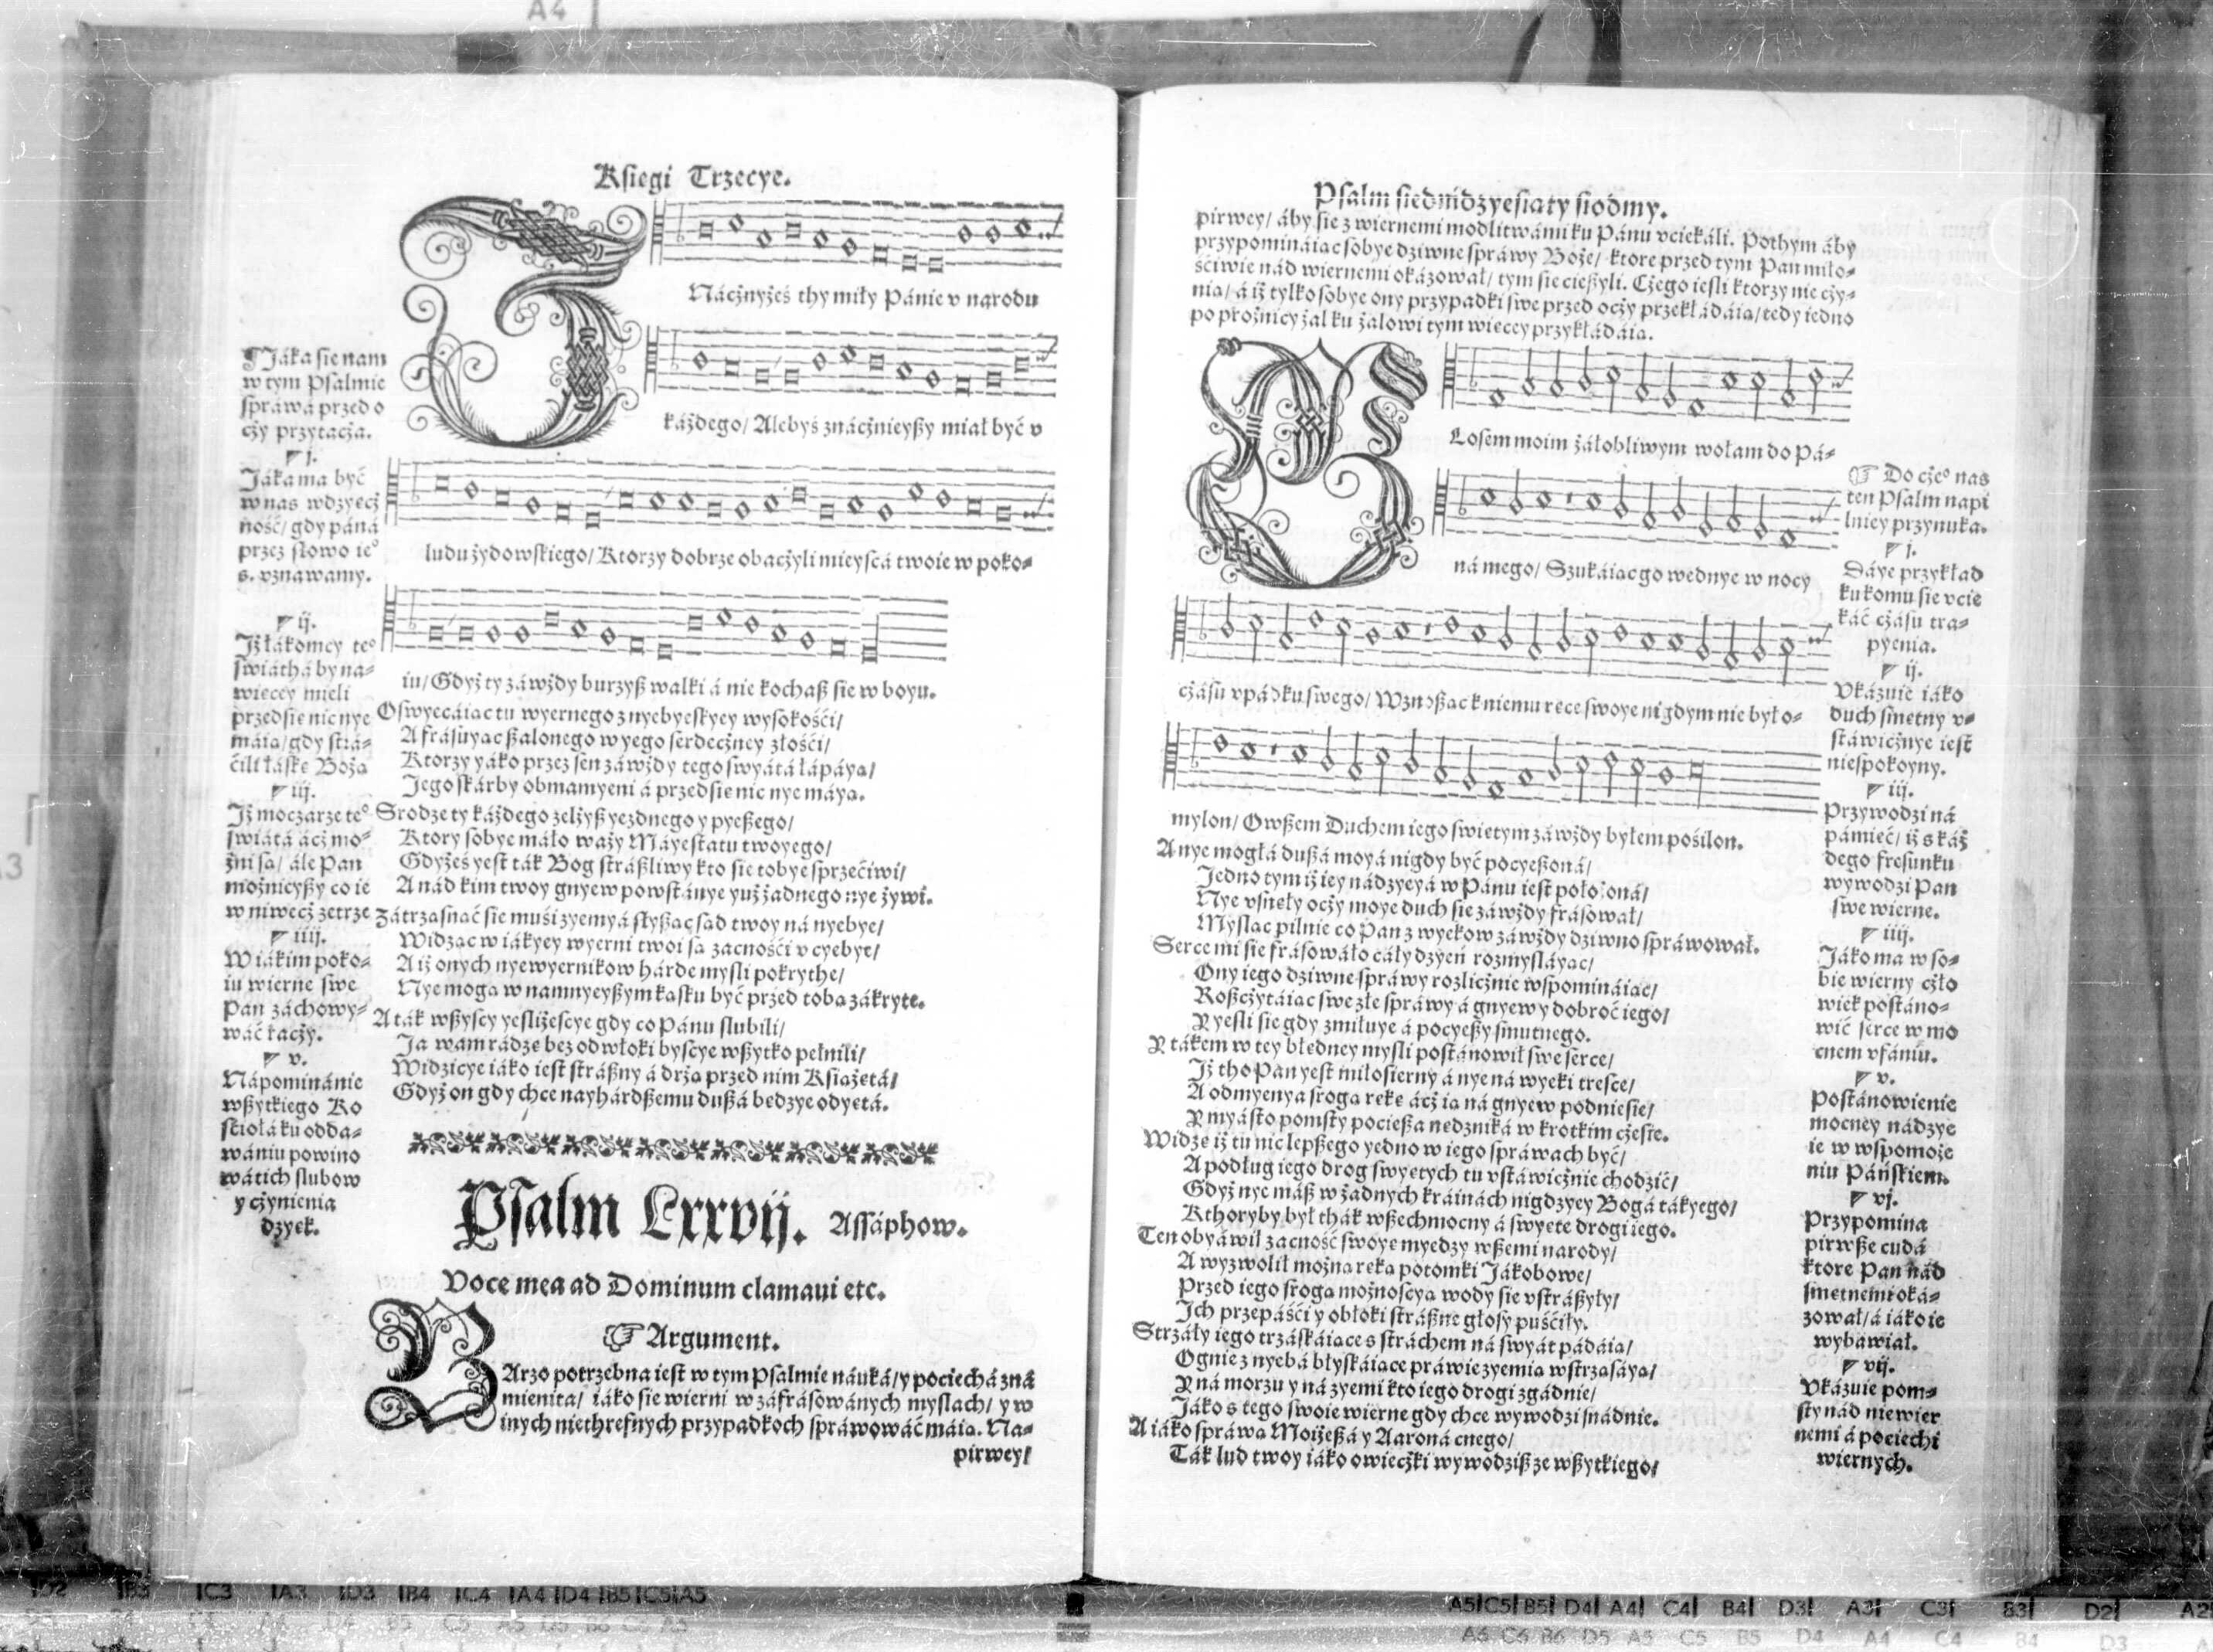 Ksiegi Trzecye.
Nácznyżeś thy miły Pánie v narodu
káżdego/ Alebyś znácżnieyßy miał być v
ludu żydowskiego/ Ktorzy dobrze obaczyli mieyscá twoie w poko=
iu/ Gdyż ty záwżdy burzyß walki á nie kochaß sie w boyu.
Oswyecáiac tu wyernego z nyebyeskyey wysokośći/
A frásuyac ßalonego w yego serdecżney złośći/
Ktorzy yáko przez sen záwżdy tego swyátá łápáya/
Jego skárby obmamyeni á przedsie nic nye máya.
Srodze ty káżdego zelżyß yezdnego y pyeßego/
Ktory sobye máło waży Máyestatu twoyego/
Gdyżeś yest ták Bog stráßliwy kto sie tobye sprzećiwi/
A nád kim twoy gnyew powstánye yuż żadnego nye żywi.
Zátrzasnać sie muśi zyemyá słyßac sad twoy ná nyebye/
Widzac w iákyey wyerni twoi sa zacnośći v cyebye/
A iż onych nyewyernikow hárde mysli pokrythe/
Nye moga w namnyeyßym kasku być przed toba zákryte.
A ták wßyscy yesliżescye gdy co Pánu slubili/
Ja wam rádze bez odwłoki byscye wßytko pełnili/
Widzicye iáko iest stráßny á drża przed nim Ksiażetá/
Gdyż on gdy chce nayhárdßemu dußá bedzye odyetá.
Psalm Lxxvij. Assáphow.
Voce mea ad Dominum clamaui etc.
☞ Argument.
BArzo potrzebna iest w tym Psalmie náuká/ y pociechá zná
mienita/ iáko sie wierni w záfrásowánych myslach/ y w
inych niethresnych przypadkoch spráwowáć máia. Na=
pirwey/
Jáka sie nam
w tym Psalmie
spráwá przed o
cży przytacża.
j.
Jáka ma być
w nas wdzyecż
ność/ gdy páná
przez słowo ieº
s. vznawamy.
ij.
Jż łákomcy teº
świáthá by na=
wiecey mieli
przedsie nic nye
máia/ gdy strá=
ćili łáske Boża
iij.
Jż moczarze teº
świátá ácż mo=
żni sa/ ále Pan
możnieyßy co ie
w niwecż zetrze
iiij.
W iákim poko=
iu wierne swe
Pan záchowy=
wáć racży.
v.
Nápominánie
wßytkiego Ko
śćiołá ku odda=
wániu powino
wátich slubow
y cżynienia
dzyek.
Psalm siedmdzyesiaty siodmy.
pirwey/ áby sie z wiernemi modlitwámi ku Pánu vciekáli. Pothym áby
przypomináiac sobye dziwne spráwy Boże/ ktore przed tym Pan miło=
śćiwie nád wiernemi okázował/ tym sie cießyli. Cżego iesli ktorzy nie cży=
nia/ á iż tylko sobye ony przypadki swe przed ocży przekłádáia/ tedy iedno
po prożnicy żal ku żalowi tym wiecey przykłádáia.
GLosem moim żáłobliwym wołam do Pá=
ná mego/ Szukáiac go we dnye w nocy
cżásu vpádku swego/ Wznoßac k niemu rece swoye nigdym nie był o=
mylon/ Owßem Duchem iego swietym záwżdy byłem pośilon.
A nye mogłá dußá moyá nigdy być pocyeßoná/
Jedno tym iż iey nádzyeyá w Pánu iest położoná/
Nye vsnęły ocży moye duch sie záwżdy frásował/
Myslac pilnie co Pan z wyekow záwżdy dziwno spráwował.
Serce mi sie frásowáło cáły dzyeń rozmysláyac/
Ony iego dziwne spráwy rozlicżnie wspomináiac/
Roßcżytáiac swe złe spráwy á gnyewy dobroć iego/
Y yesli sie gdy zmiłuye á pocyeßy smutnego.
Y tákem w tey błedney mysli postánowił swe serce/
Jż tho Pan yest miłosierny á nye ná wyeki tresce/
A odmyenya sroga reke ácż ia ná gnyew podniesie/
Y myásto pomsty pocießa nedzniká w krotkim cżesie.
Widze iż tu nic lepßego yedno w iego spráwach być/
A podług iego drog swyetych tu vstáwicżnie chodzić/
Gdyż nye máß w żadnych kráinách nigdzyey Bogá tákyego/
Kthoryby był thák wßechmocny á swyete drogi iego.
Ten obyáwil zacność swoye myedzy wßemi narody/
A wyzwolił można reka potomki Jákobowe/
Przed iego sroga możnoscya wody sie vstráßyły/
Jch przepáśći y obłoki stráßne głosy puśćiły.
Strzáły iego trzáskáiace s stráchem ná swyát pádáia/
Ognie z nyebá błyskáiace práwie zyemia wstrzasáya/
Y ná morzu y ná zyemi kto iego drogi zgádnie/
Jáko s tego swoie wierne gdy chce wywodzi snádnie.
A iáko spráwa Moiżeßá y Aaroná cnego/
Ták lud twoy iáko owiecżki wywodziß ze wßytkiego/
☞ Do cżeº nas
ten Psalm napi
lniey przynuka.
j.
Dáye przykład
ku komu sie vcie
káć cżásu tra=
pyenia.
ij.
Vkázuie iáko
duch smetny v=
stáwicżnye iest
niespokoyny.
iij.
Przywodzi ná
pámieć/ iż s káż
dego fresunku
wywodzi Pan
swe wierne.
iiij.
Jáko ma w so=
bie wierny cżło
wiek postáno=
wić serce w mo
cnem vfániu.
v.
Postánowienie
mocney nádzye
ie w wspomoże
niu Páńskiem.
vj.
Przypomina
pirwße cudá
ktore Pan nád
smetnemi oká=
zował/ á iáko ie
wybáwiał.
vij.
Vkázuie pom=
sty nád niewier
nemi á pociechi
wiernych.